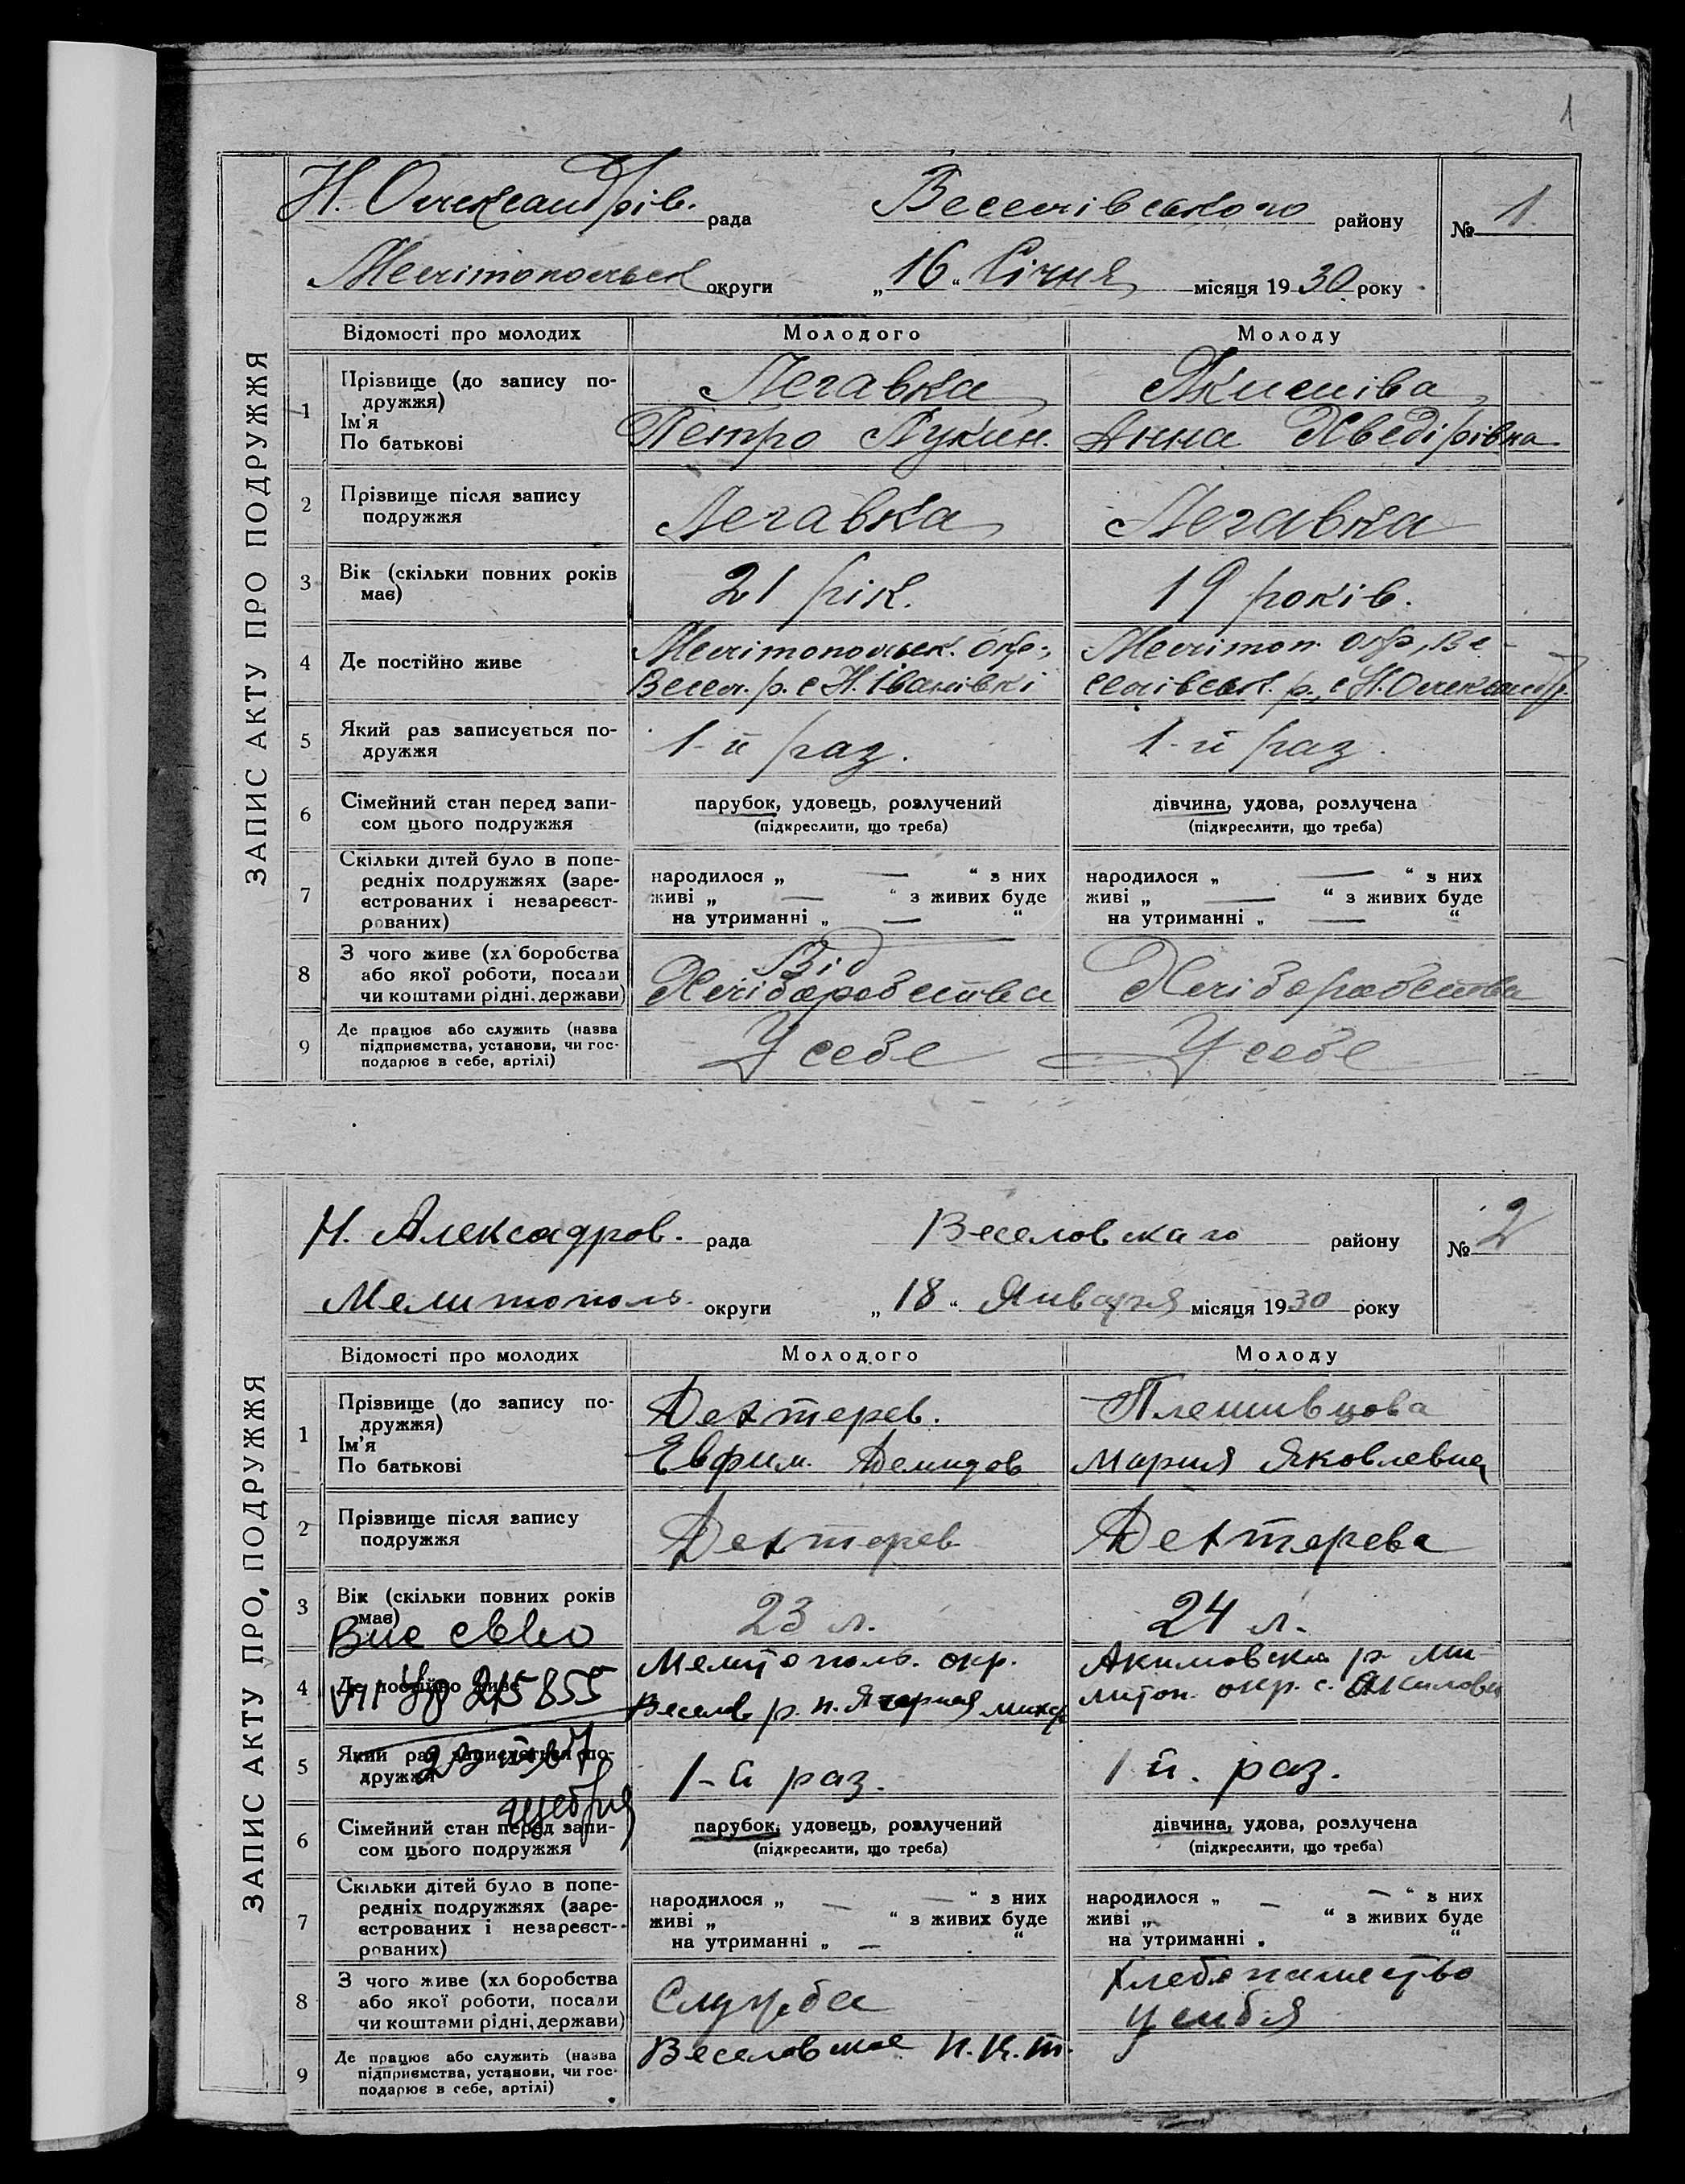 1
ЗАПИС АКТУ ПРО ПОДРУЖЖЯ
Н. Олександрів. рада Веселівського району № 1
Мелітопольськ округи „16“ Січня місяця 1930 року
Відомості про молодих Молодого Молоду
1 Прізвище (до запису по-
дружжя)
Ім'я
По батькові
Легавка
Петро Лукин.
Акимова
Анна Хведірівна
2 Прізвище після запису
подружжя
Легавка Легавка
3 Вік (скільки повних років
має)
21 рік. 19 років.
4 Де постійно живе
Мелітопольськ. окр.,
Весел. р. с Н. Іванівкі
Мелітоп. окр, Ве-
селівськ. р., с Н. Олександр.
5 Який раз записується по-
дружжя
1-й раз. 1-й раз.
6 Сімейний стан перед запи-
сом цього подружжя
парубок, удовець, розлучений
(підкреслити, що треба)
дівчина, удова, розлучена
(підкреслити, що треба)
7 Скільки дітей було в попе-
редніх подружжях (заре-
єстрованих і незареєст-
рованих)
народилося „ — “ з них
живі „ — “ з живих буде
на утриманні „ — “
народилося „ — “ з них
живі „ — “ з живих буде
на утриманні „ — “
8 З чого живе (хл боробства
або якої роботи, посади
чи коштами рідні, держави)
Від
Хліборобства
Хліборобства
9 Де працює або служить (назва
підприємства, установи, чи гос-
подарює в себе, артілі)
У себе У себе
ЗАПИС АКТУ ПРО ПОДРУЖЖЯ
Н. Алексадров. рада Веселовскаго району № 2
Мелитополь. округи „18“ Января місяця 1930 року
Відомості про молодих Молодого Молоду
1 Прізвище (до запису по-
дружжя)
Ім'я
По батькові
Дехтерев.
Евфим. Демидов
Плешивцова
Мария Яковлевна
2 Прізвище після запису
подружжя
Дехтерев Дехтерева
3 Вік (скільки повних років
має)
23 л. 24 л.
4 Де постійно живе
215855
Мелитополь. окр.
Веселов р. п.
Акимовска р. Ми-
литоп. окр. с. Акимовка
5 Який раз записується по-
дружжя
1-й раз. 1 й. раз.
6 Сімейний стан перед запи-
сом цього подружжя
парубок, удовець, розлучений
(підкреслити, що треба)
дівчина, удова, розлучена
(підкреслити, що треба)
7 Скільки дітей було в попе-
редніх подружжях (заре-
єстрованих і незареєст-
рованих)
народилося „ — — “ з них
живі „ “ з живих буде
на утриманні „ — “
народилося „ — — “ з них
живі „ “ з живих буде
на утриманні „ “
8 З чого живе (хл боробства
або якої роботи, посади
чи коштами рідні, держави)
Служба
Хлебопашество
у себя
9 Де працює або служить (назва
підприємства, установи, чи гос-
подарює в себе, артілі)
Веселовское п. к. т.